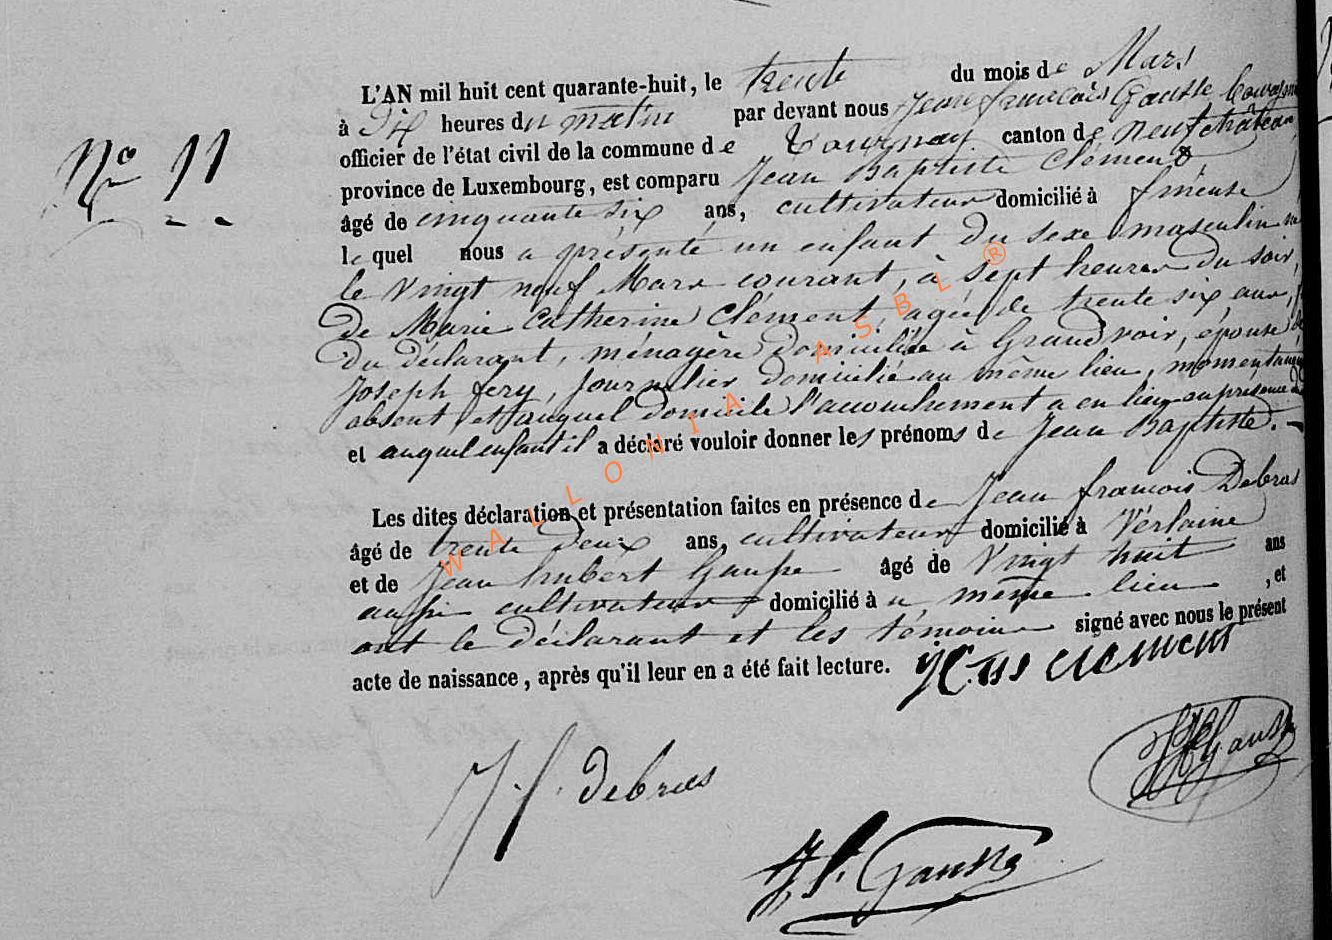 N° 11
L'AN mil huit cent quarante-huit, le trente du mois de Mars
à dix heures du matin par devant nous Jean françois Gausse Bourgm
officier de l'état civil de la commune de Tournay canton de Neufchâteau,
province de Luxembourg, est comparu Jean Baptiste Clément
âgé de cinquante six ans, cultivateur domicilié à fineuse
lequel nous a présenté un enfant du sexe masculin né
le vingt neuf Mars courant, à sept heures du soir,
de Marie Catherine Clément, agée de trente six ans,
du déclarant, ménagère domiciliée à Grandvoir, épouse de
Joseph fery, journalier domicilié au même lieu, momentaném
absent et auquel domicile l'accouchement a eu lieu en présence du
et auquel enfant il a déclaré vouloir donner les prénoms de Jean Baptiste.
Les dites déclaration et présentation faites en présence de Jean françois Debras
âgé de trente deux ans, cultivateur domicilié à Verlaine
et de Jean hubert Gausse âgé de vingt huit ans
aussi cultivateur domicilié à u même lieu, et
ont le déclarant et les témoins signé avec nous le présent
acte de naissance, après qu'il leur en a été fait lecture. clement
J. f. debras
Gausse
J. f. Gausse
WALLONIA ASBL ®